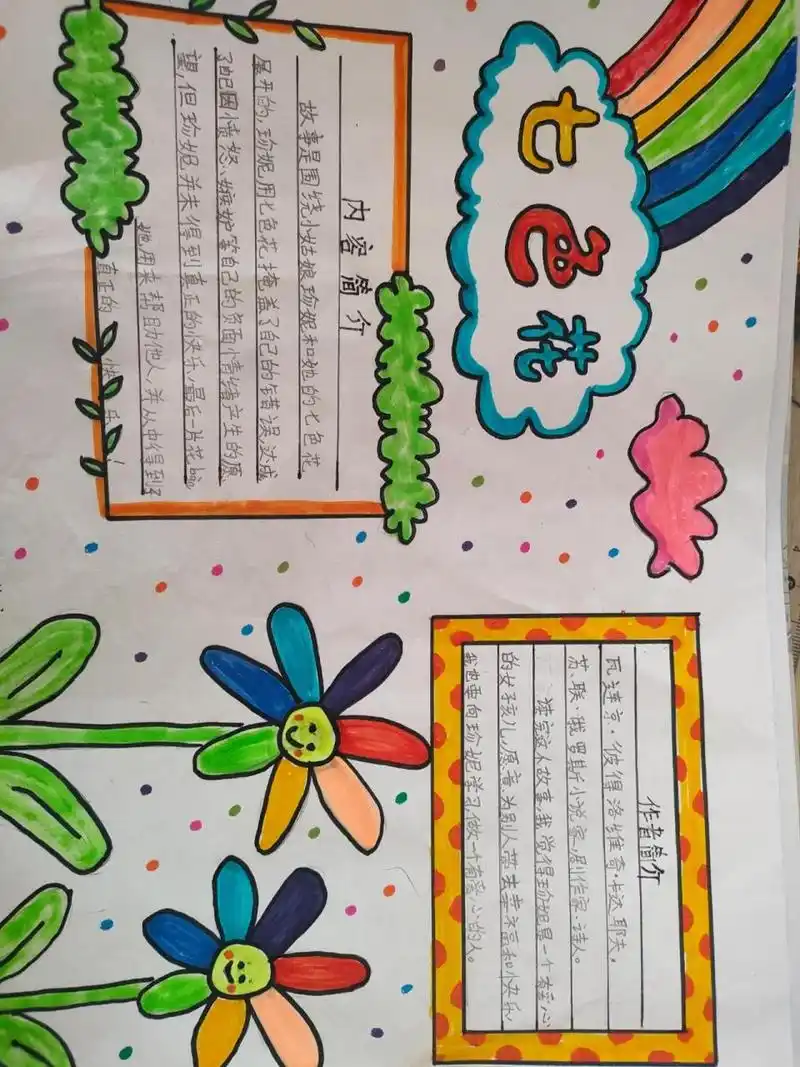 七色花
内容简介
故事是围绕小姑娘珍妮和她的七色花
展开的,珍妮用七色花掩盖了自己的错误达成
了吧因愤怒、嫉妒等自己的负面小情绪产生的愿
望,但珍妮并未得到真正的快乐,最后一片花
她用来帮助他人,并从中得到了
真正的 快乐!
作者简介
瓦连京·彼得洛维奇·卡达耶夫。
苏、联·俄罗斯小说家、剧作家、诗人。
读完这个故事,我觉得珍妮是一个有爱心
的女孩儿,愿意为别人带去幸福和快乐
我也要向珍妮学习,做一个有爱心的人。